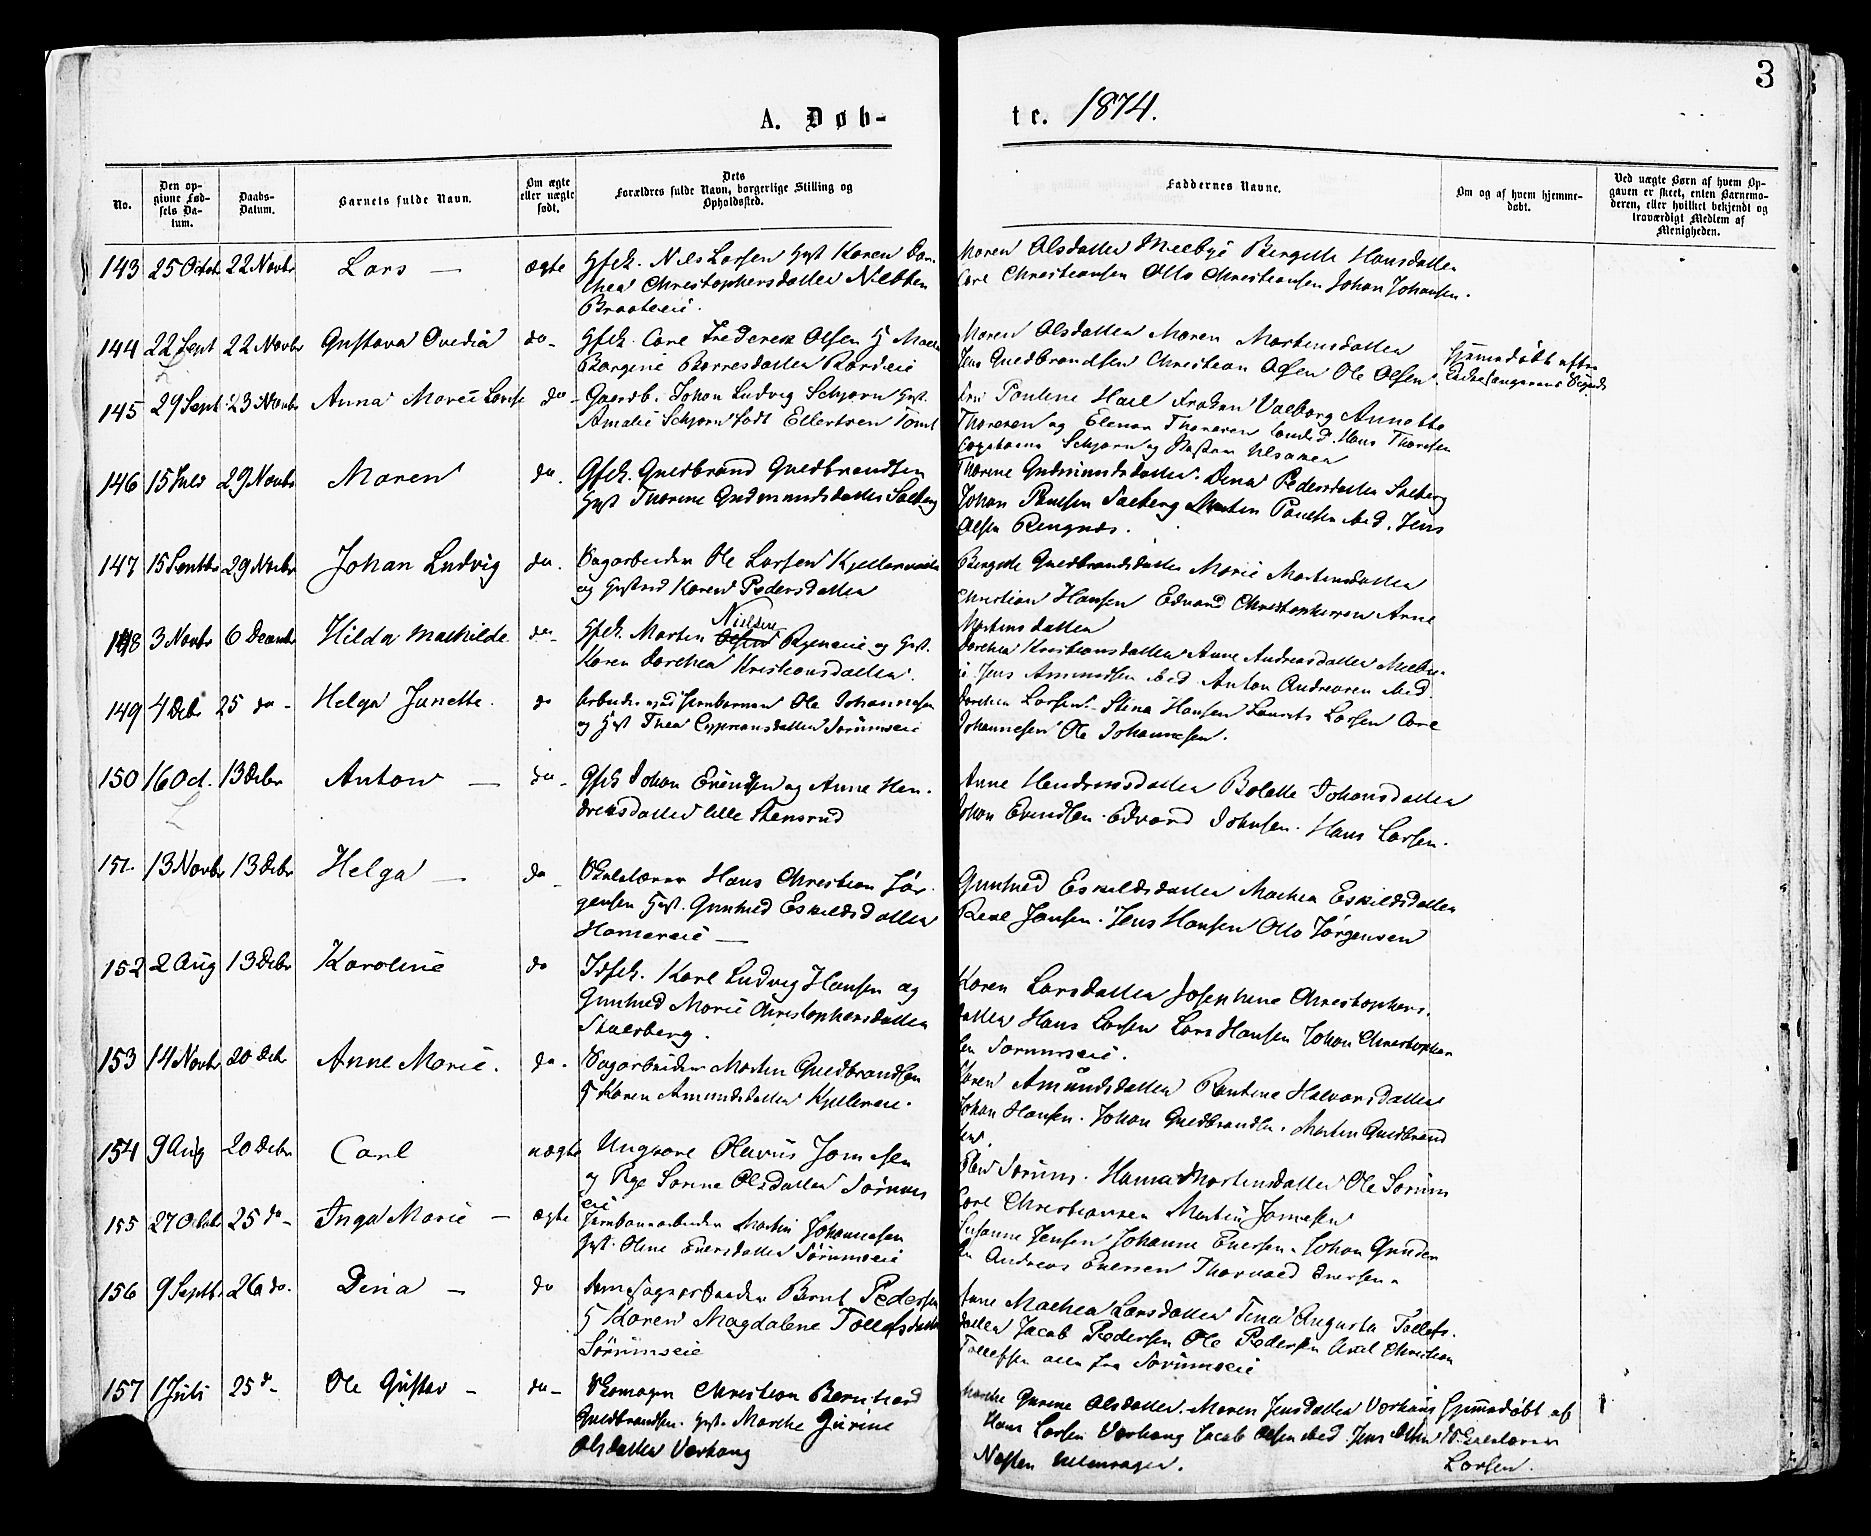 3
A. Døb-
te. 1874.
No.
Den op-
givne Fød-
sels Da-
tum.
Daabs-
Datum.
Barnets fulde Navn.
Om ægte
eller uægte
født.
Dets
Forældres fulde Navn, borgerlige Stilling og
Opholdssted.
Faddernes Navne.
Om og af hvem hjemme-
døbt.
Ved uægte Børn af hvem Op-
gaven er skeet, enten Barnemo-
deren, eller hvilket bekjendt og
troværdigt Medlem af
Menigheden.
143 25 Octbr 22 Novbr Lars – ægte Gfsk. Nils Larsen Hust Karen Dor-
thea Christophersdatter
Braateeie.
Maren Olsdatter Melbye Bergitte Hansdatter
Carl Christiansen Otto Christiansen Johan Johansen.
144 22 Sept 22 Novbr Gustava Ovedia do- Gfsk. Carl Frederik Olsen H
Bergine
Maren Olsdatter Maren Mortensdatter
Jens Guldbrandsen Christian Olsen Ole Olsen.
Hjemmedøbt efter
145 29 Sept 23 Novbr Anna Marie Lovise do- Gaardb. Johan Ludvig Schjørn Hust.
Amalie Schjørn født Ellertsen Tomt
Pauline Frøken Valborg Annette
Thoresen og Elenor Thoresen Hans Thoresen
Schjørn og
146 15 Juli 29 Novbr Maren do. Gfsk. Guldbrand Guldbrandsen
Hust Thorine Gudmundsdatter Solberg
Thorine Gudmundsdatter. Dina Pedersdatter Solberg
Johan Paulsen Solberg Martin Paulsen ibid. Jens
Olsen Ringnæs.
147 15 Septbr 29 Novbr Johan Ludvig do. Sagarbeider Ole Larsen
og Hustru Karen Pedersdatter
Bergitte Guldbrandsdatter Marie Mortensdatter
Christian Hansen Edvard Christophersen Anne
Mortensdatter
148 3 Novbr 6 Decembr Hilda Mathilde do- Gfsk. Morten Olsen Nielsen og Hust.
Karen Dorthea Kristiansdatter.
Dorthea Kristiansdatter Anne Andreasdatter
Jens Amundsen ibid Anton Andreasen ibid.
149 4 Debr 25 do- Helga Janette. do Arbeider ved Jernbanen Ole Johannesen
og Hust Thea Cypriansdatter Sørumseie
Dorthea Larsen- Stina Hansen Laurits Larsen Carl
Johannesen Ole Johannesen.
150 16 Oct. 13 Debr Anton – do- Gfsk Johan Evensen og Anne Hen-
driksdatter lille Stensrud
Anne Hendriksdatter Bolette Johansdatter
Johan Evensen. Edvard Johnsen. Hans Larsen.
151. 13 Novbr 13 Debr Helga – do- Skolelærer Hans Christian Jør-
gensen Hust. Gunhild Eskildsdatter
Hamereie –
Gunhild Eskildsdatter Mathea Eskildsdatter
Jansen. Jens Hansen Otto Jørgensen
152 2 Aug 13 Debr Karoline do Karl Ludvig Hansen og
Gunhild Marie Christophersdatter
Karen Larsdatter Josephine Christophers.
datter Hans Larsen Lars Hansen Johan Christopher
sen Sørumseie.
153 14 Novbr 20 Debr Anne Marie. do. Sagarbeider Martin Guldbrandsen
H Karen Amundsdatter Kjellereie.
Karen Amundsdatter Pauline Halvorsdatter
Johan Hansen. Johan Guldbrandsen. Martin Guldbrand
sen.
154 9 Aug 20 Debr Carl uægte Ungkarl Olavus Jonassen
og Pige Sorine Olsdatter Sørums
eie
Sørum. Hanna Mortensdatter Ole Sørum
Carl Christiansen Martin Jonassen
155 27 Octobr 25 do- Inga Marie – ægte Jernbanearbeider Martin Johannesen
Hust. Oline Eversdatter Sørumseie
Susanne Jensen Johanne Eversen. Johan
Andreas Eversen Thorvald Eversen.
156 9 Septbr 26 do. Dina – do Bernt Pedersen
H Karen Magdalene Tollefsdatter
Sørumseie
Anne Mathea Larsdatter Tina Augusta Tollefs.
datter Jacob Pedersen Ole Pedersen Axel Christian
Tollefsen alle fra Sørumseie
157 1 Juli 25 do- Ole Gustav – do- Skomager Christian Bernhard
Guldbrandsen. Hust. Marthe Gurine
Olsdatter Vorhaug
Marthe Gurine Olsdatter. Maren Jensdatter Vorhaug
Hans Larsen Vorhaug Jacob Olsen ibid. Jens Olsen
Hjemmedøbt af
Skolelærer
Larsen.